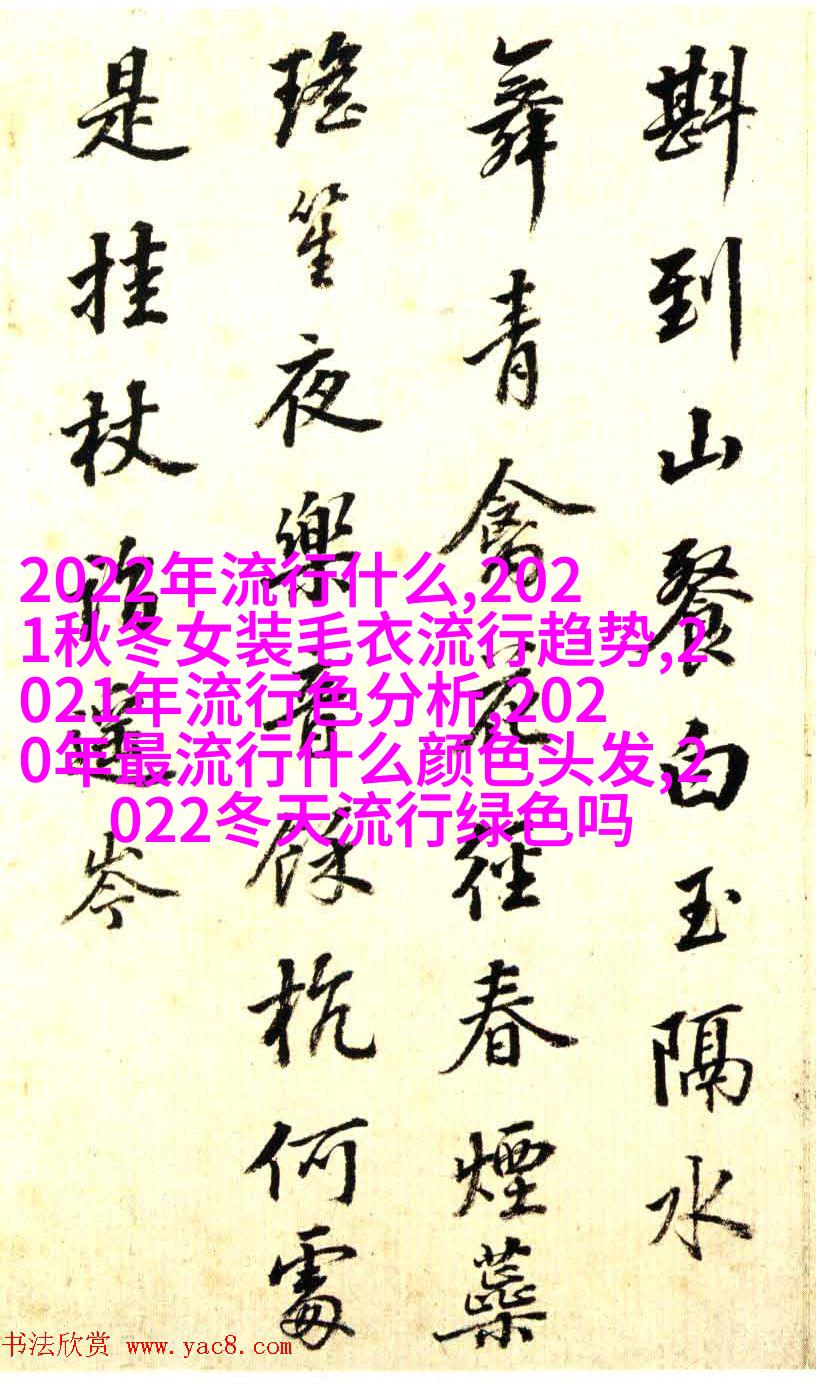 斟到山餐白玉隔水
舞青禽花径春煙蘂
瑤笙夜樂音餘杭何處
是挂杖陟遥岑
2022年流行什么,202
1秋冬女装毛衣流行趋势,2
021年流行色分析,202
0年最流行什么颜色头发,2
022冬天流行绿色吗
书法欣赏 www.yac8.com